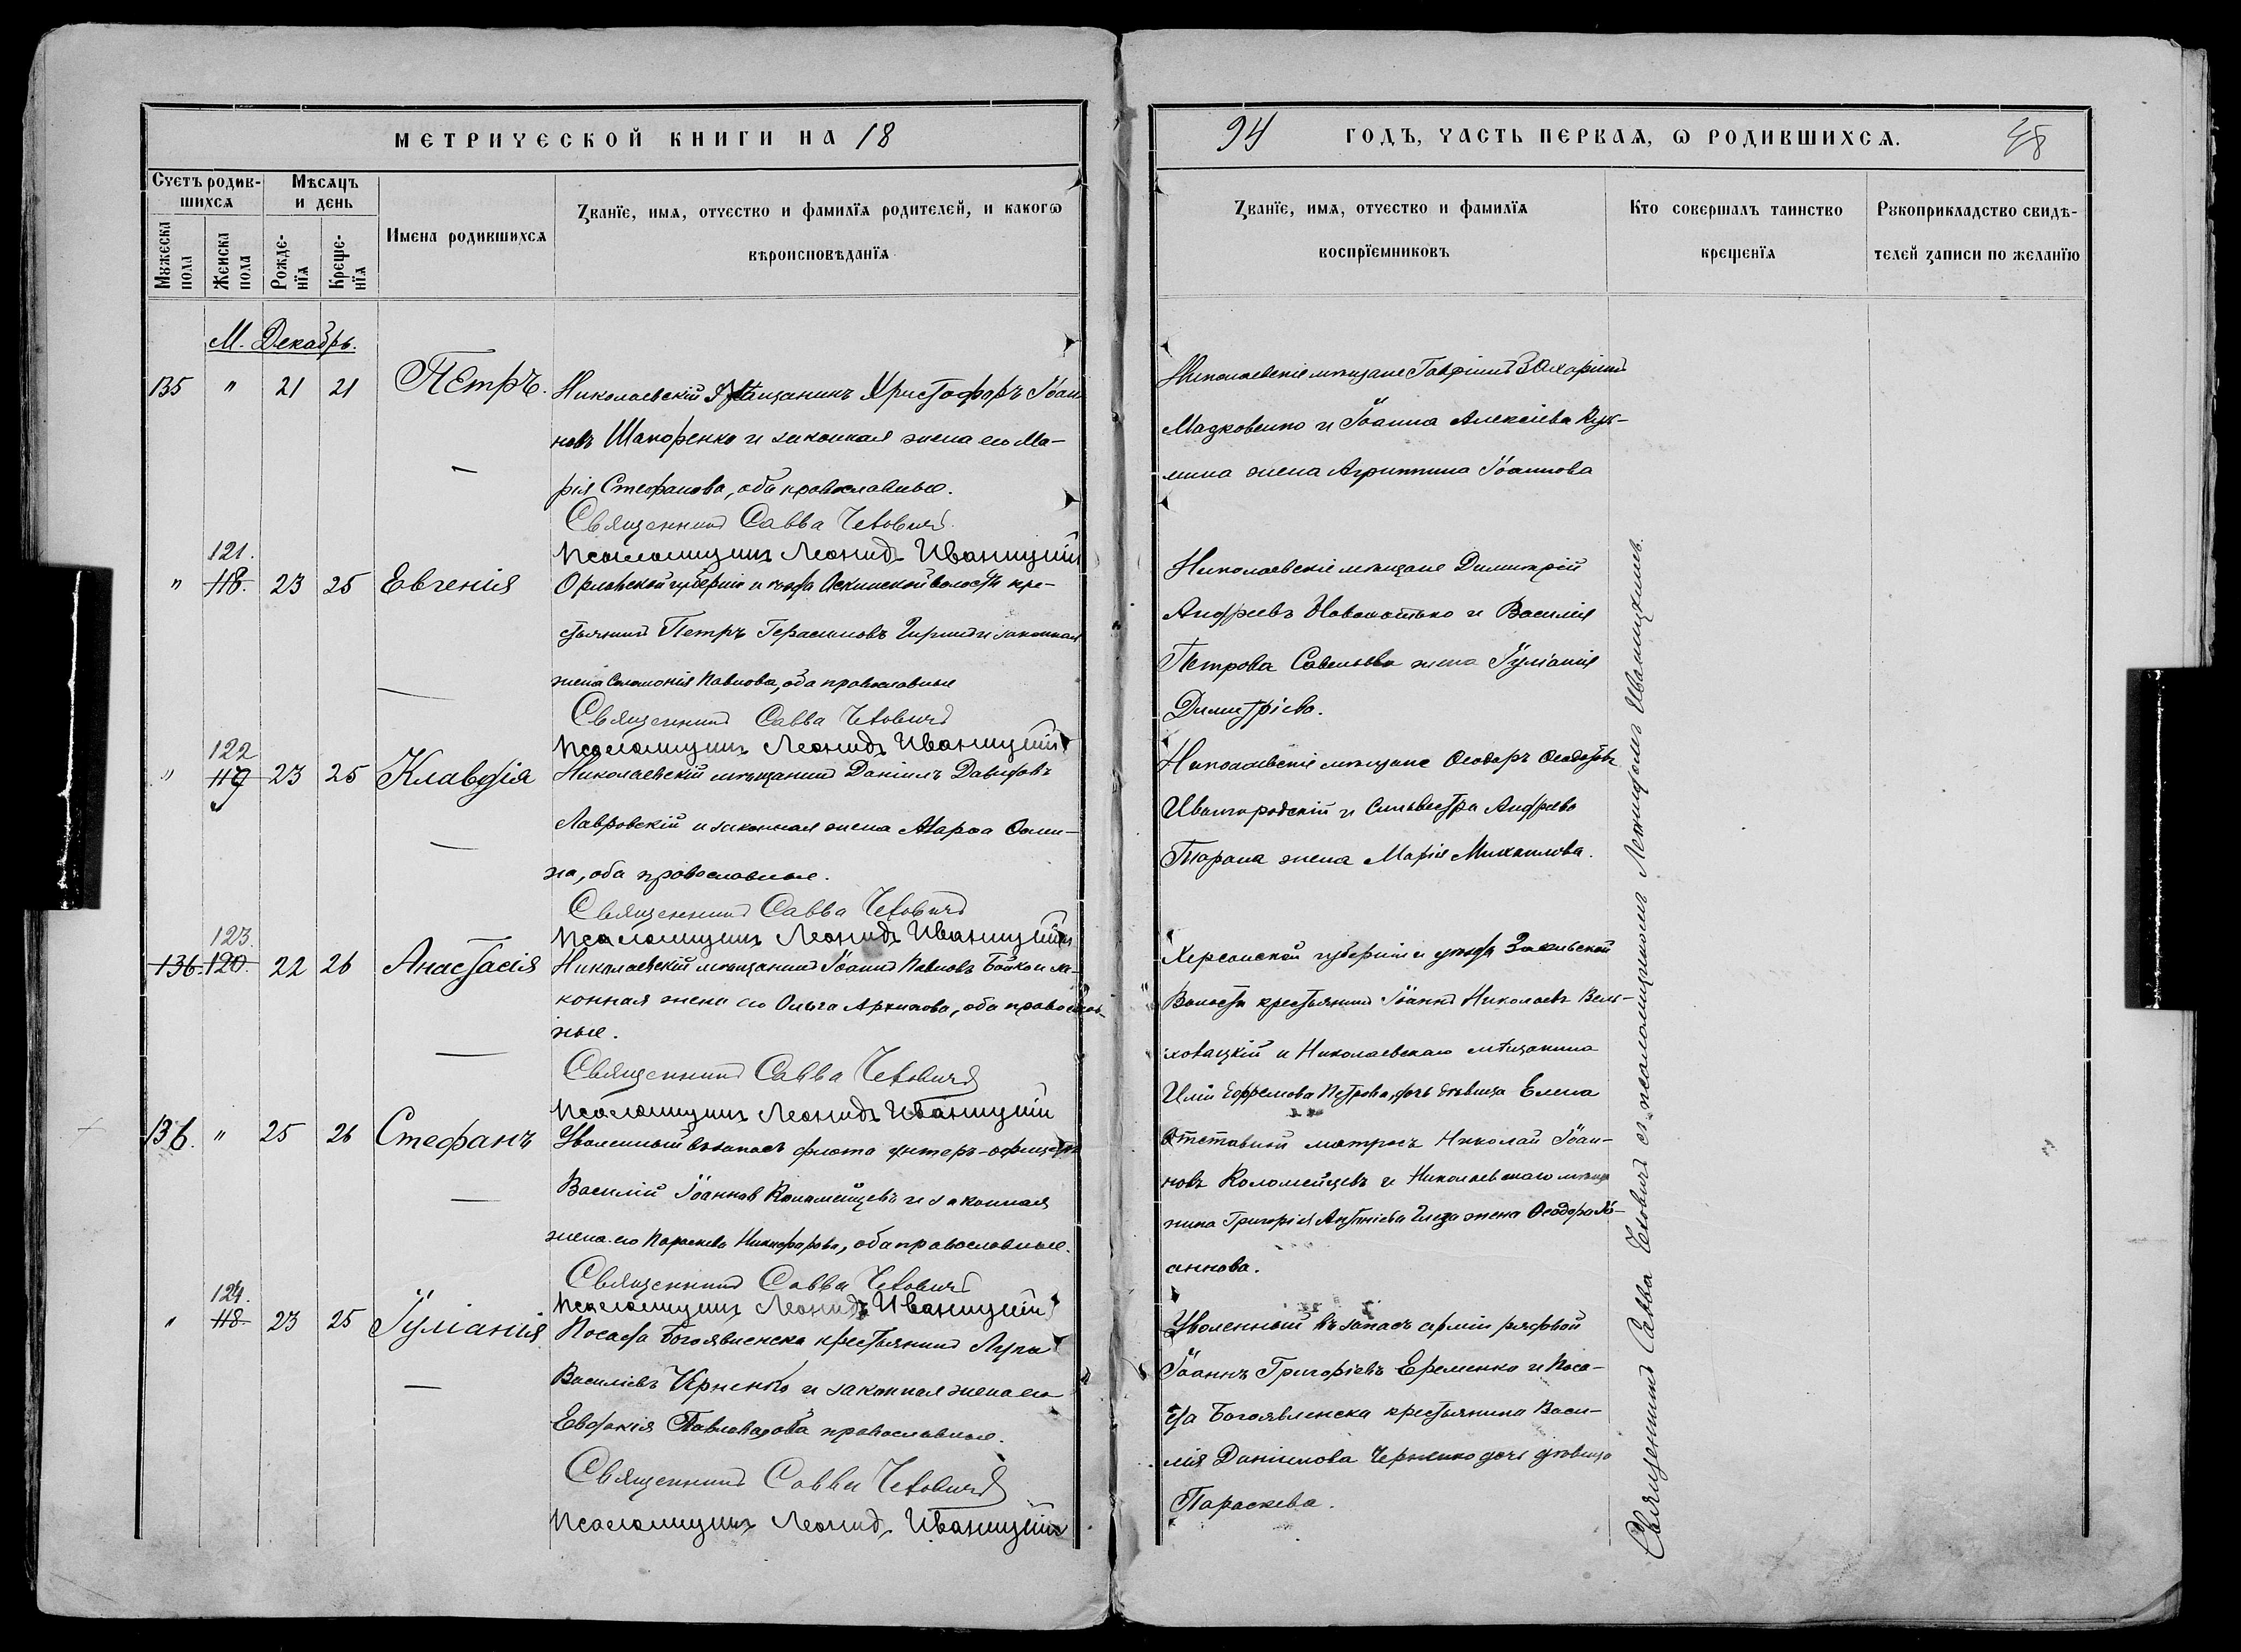 МЕТРИЧЕСКОЙ КНИГИ НА 18
94 ГОДЪ, ЧАСТЬ ПЕРВАѦ, Ѡ РОДИВШИХСѦ. 48
Счетъ родив-
шихсѧ
Мѣсѧцъ
и день
Мꙋжеска
пола
Женска
пола
Рожде-
нїѧ
Креще-
нїѧ
Имена родившихсѧ
Званїе, имѧ, отчество и фамилїѧ родителей, и какогѡ
вѣроисповѣданїѧ
Званїе, имѧ, отчество и фамилїѧ
воспрїемниковъ
Кто совершалъ таинство
крещенїѧ
Рꙋкоприкладство свидѣ-
телей записи по желанїю
М. Декабрь.
135 " 21 21 Петръ.
Николаевскій Мѣщанинъ Христофоръ Іоан-
новъ Шапоренко и законная жена его Ма-
рія Стефанова, оба православные.
Священникъ Савва Четовичъ
Псаломщикъ Леонидъ Иваницкій
Николаевскіе мѣщане Гавріилъ Захаріинъ
и Іоанна Алексіева Кузь-
мина жена Агриппина Іоаннова
121.
" 118. 23 25 Евгенія
Орловской губерніи и уѣзда волости кре-
стьянинъ Петръ Герасимовъ и законная
жена Соломонія Павлова, оба православные
Священникъ Савва Четовичъ
Псаломщикъ Леонидъ Иваницкій
Николаевскіе мѣщане Димитрій
Андреевъ и Василія
Петрова Савельева жена Іуліанія
Димитріева.
122
" 119 23 25 Клавдія
Николаевскій мѣщанинъ Даніилъ Давидовъ
Лавровскій и законная жена Марѳа Ѳоми-
на, оба православные.
Священникъ Савва Четовичъ
Псаломщикъ Леонидъ Иваницкій
Николаевскіе мѣщане Ѳеодоръ Ѳеодотовъ
Ивангородскій и Сильвестра Андреева
Тарана жена Марія Михаилова.
123.
136. 120. 22 26 Анастасія
Николаевскій мѣщанинъ Іоаннъ Павловъ Бойко и за-
конная жена его Ольга Архипова, оба православ-
ные.
Священникъ Савва Четовичъ
Псаломщикъ Леонидъ Иваницкій
Херсонской губерніи и уѣзда
Волости крестьянинъ Іоаннъ Николаевъ Вель-
ховацкій и Николаевскаго мѣщанина
Иліи Ефремова Петрова, дочь дѣвица Елена
136. " 25 26 Стефанъ
Уволенный въ запасъ флота унтеръ-офицеръ
Василій Іоанновъ Коломейцевъ и законная
жена его Параскева Никифорова, оба православные.
Священникъ Савва Четовичъ
Псаломщикъ Леонидъ Иваницкій
Отставной матросъ Николай Іоан-
новъ Коломейцевъ и Николаевскаго мѣща-
нина Григорія Антоніева жена Ѳеодора Іо-
аннова.
124.
" 118. 23 25 Іуліанія
Посада Богоявленска крестьянинъ Лука
Василіевъ и законная жена его
Евдокія Павлова, оба православные.
Священникъ Савва Четовичъ
Псаломщикъ Леонидъ Иваницкій
Уволенный въ запасъ арміи рядовой
Іоаннъ Григоріевъ Еременко и Поса-
да Богоявленска крестьянина Васи-
лія Даніилова Черненко дочь дѣвица
Параскева.
Священникъ Савва Четовичъ съ псаломщикомъ Леонидомъ Иваницкимъ.